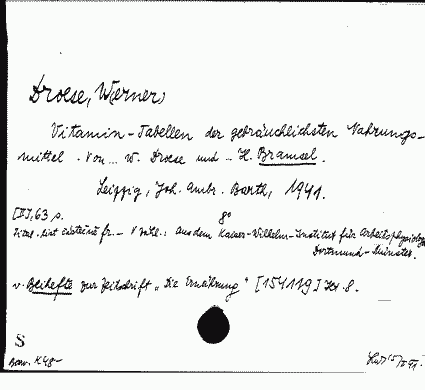 Droese, W(erner)
Vitamin-Tabellen der gebräuchlichsten Nahrungs-
mittel. Von... W. Droese und .. H. Bramsel.
Leipzig, Joh. Ambr. Barth, 1941.
63 p. 8°
Aus dem Kaiser-Wilhelm-Institut für Arbeitsphysiologie
Dortmund-Münster.
v. Beihefte zur Zeitschrift „Die Ernährung" [154119] H. 8.
S